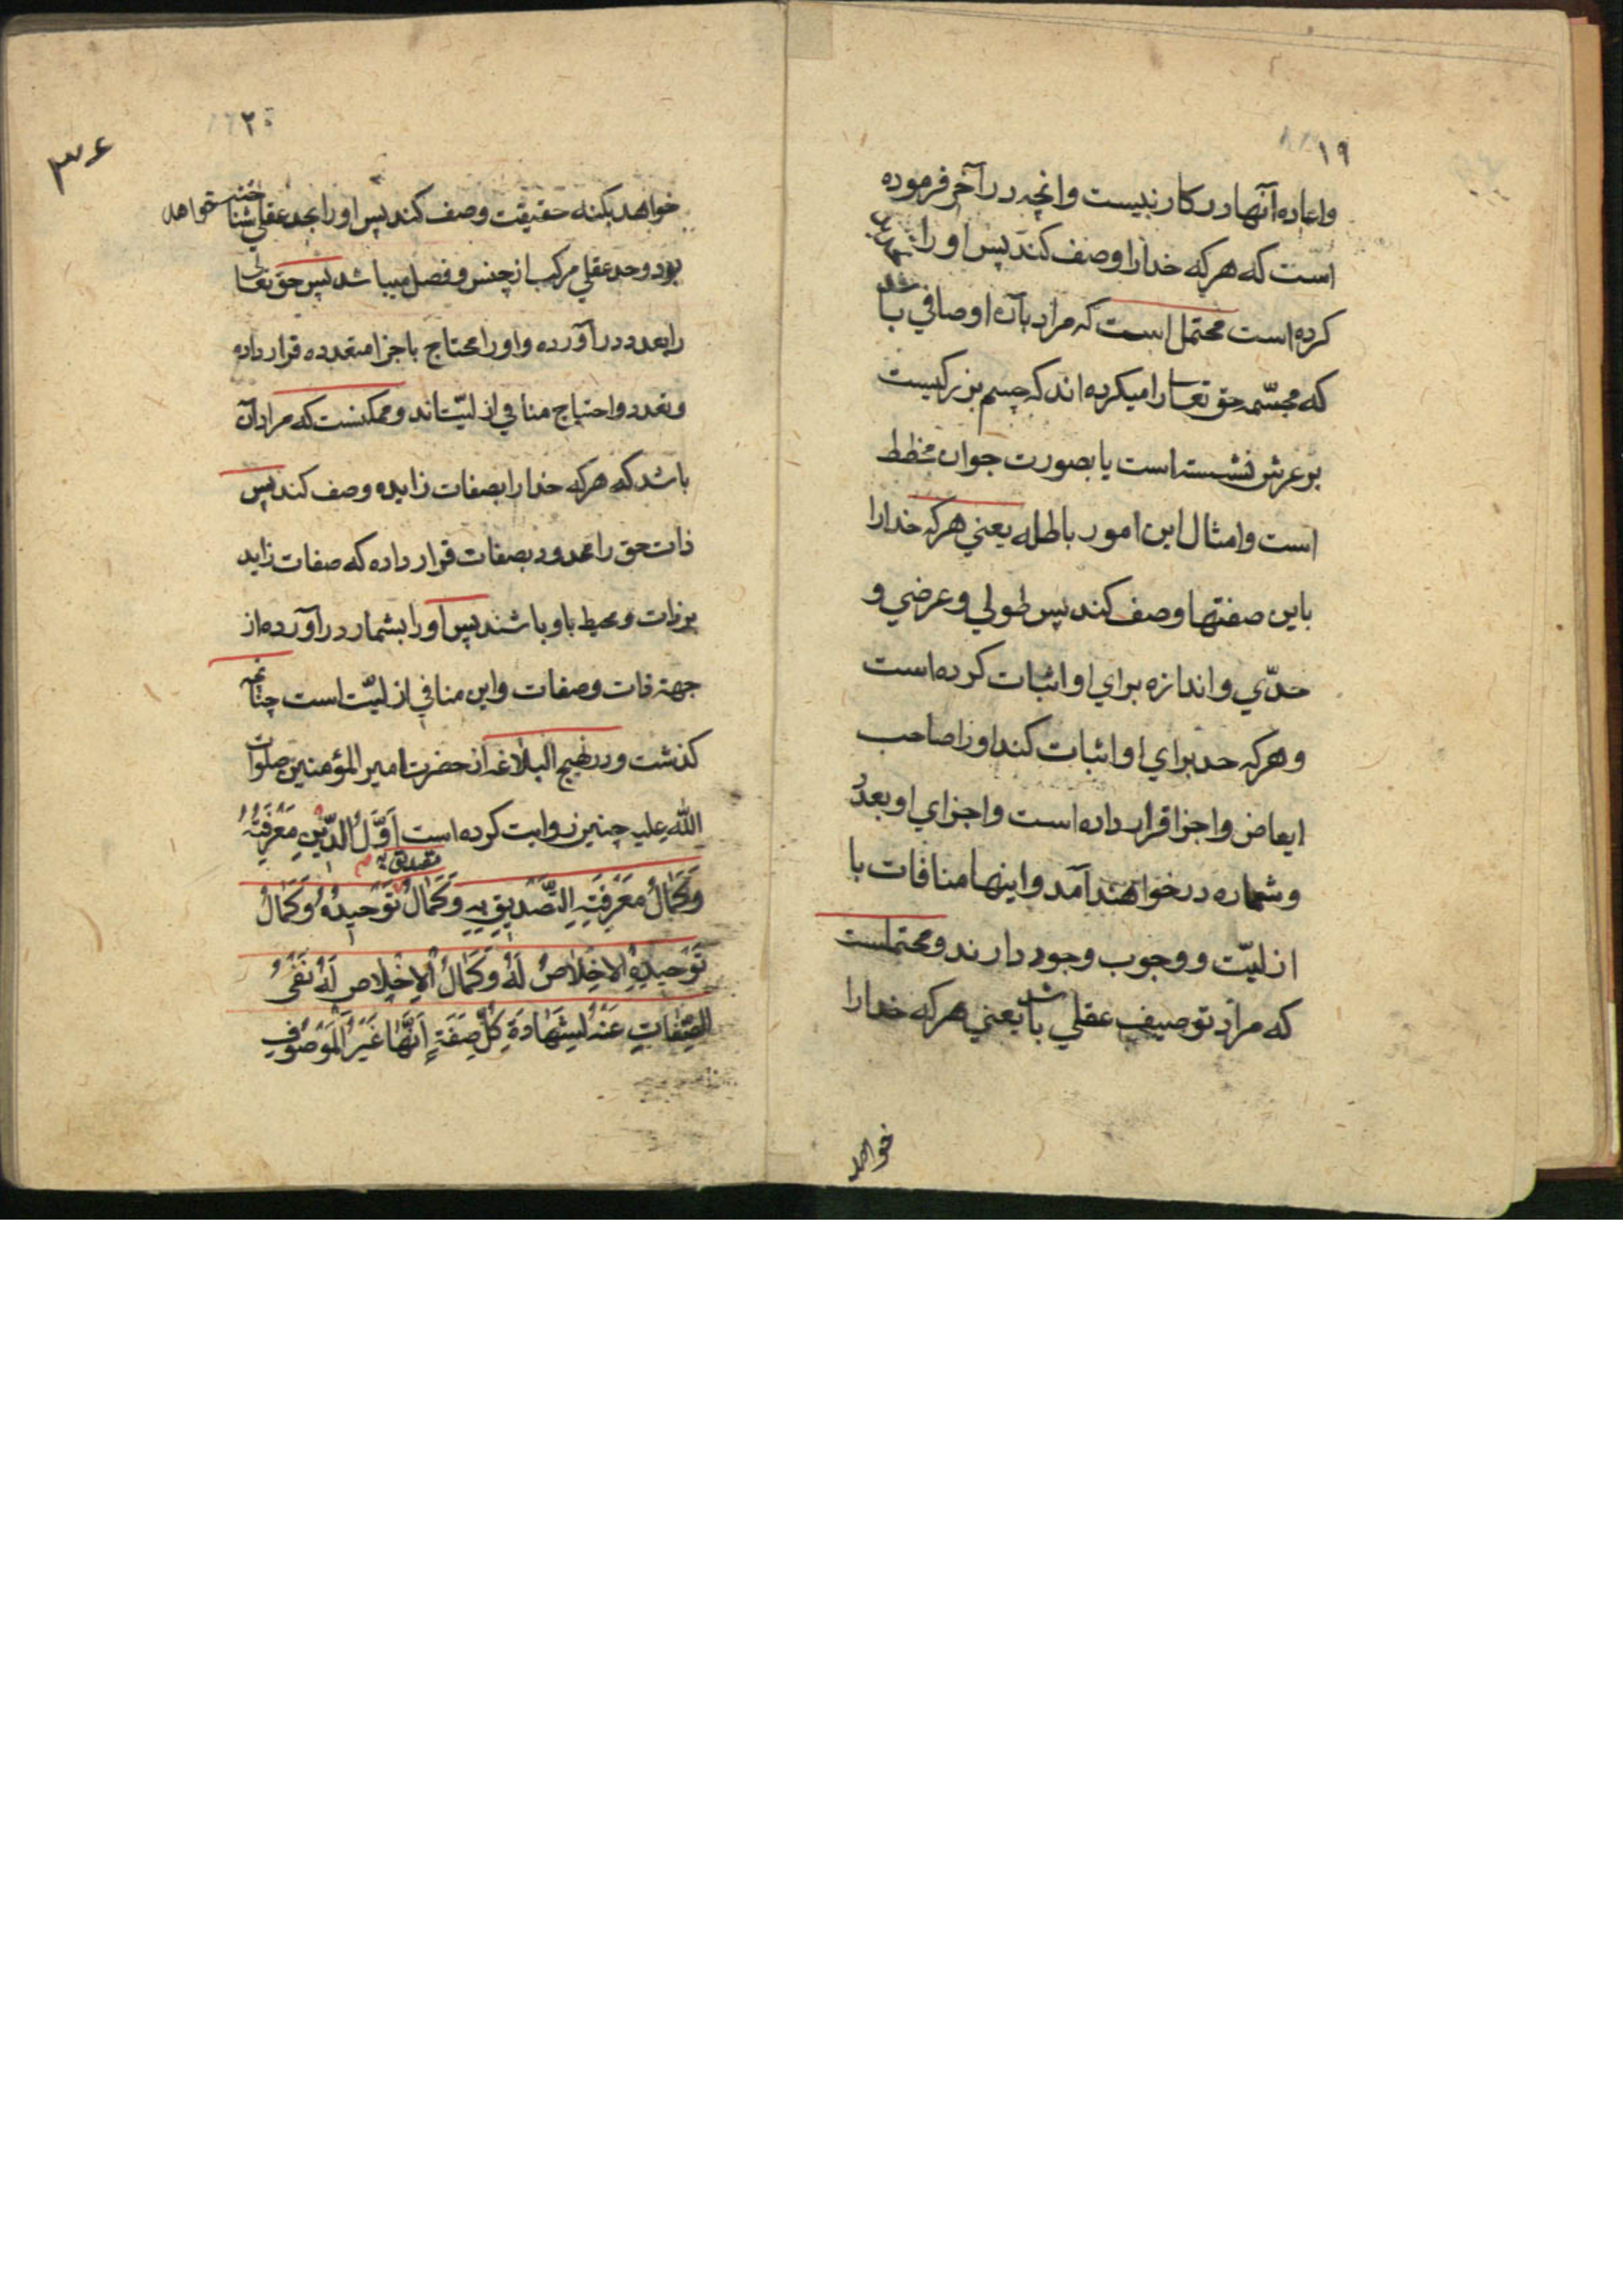 ١٩
واعاده آنها در کار نیست وانچه در آخر فرموده
است که هرکه خدا را وصف کند پس او را
کرده است محتمل است که مراد بآن اوصافی باشد
که مجسّمه حق تعا را میکرده اند که جسم بزرگیست
بر عرش نشسته است یا بصورت جوان مخطط
است وامثال این امور باطله یعنی هرکه خدا را
باین صفتها وصف کند پس طولی وعرضی و
حدّی واندازه برای او اثبات کرده است
وهرکه حد برای او اثبات کند او را صاحب
ابعاض واجزا قرار داده است واجزای او بعدد
وشماره در خواهند آمد واینها منافات با
ازلیّت ووجوب وجود دارند ومحتملست
که مراد توصیف عقلی باشد یعنی هرکه خدا را
خواهد
٢٠
٣۶
خواهد بکنه حقیقت وصف کند پس او را بحد عقلی شناخته خواهد
بود وحد عقلی مرکب از جنس وفصل میباشد پس حق تعالی
را بعدد در آورده واو را محتاج باجزا متعدده قرار داده
وتعدد واحتیاج منافی ازلیّت اند وممکنست که مراد آن
باشد که هرکه خدا را بصفات زایده وصف کند پس
ذات حق را محدود بصفات قرار داده که صفات زاید
بر ذات ومحیط باو باشند پس او را بشمار در آورده از
جهة ذات وصفات واین منافی ازلیّت است چنانچه
گذشت ودر نهج البلاغه از حضرت امیر المؤمنین صلوات
الله علیه چنین روایت کرده است اَوَّلُ الدّینِ مَعْرِفَتُهُ
تصدیق به
وَکَمالُ مَعْرِفَتِهِ التَّصْدیقِ بِهِ وَکَمالُ تَوْحیدُهُ وَکَمالُ
تَوْحیدِهِ الاِخْلاصُ لَهُ وَکَمالُ الْاِخْلاصِ لَهُ نَفْیُ
الصِّفاتِ عَنْهُ لِشَهادَةِ کُلِّ صِفَةٍ اَنَّها غَیْرُ الْمَوْصُوفِ